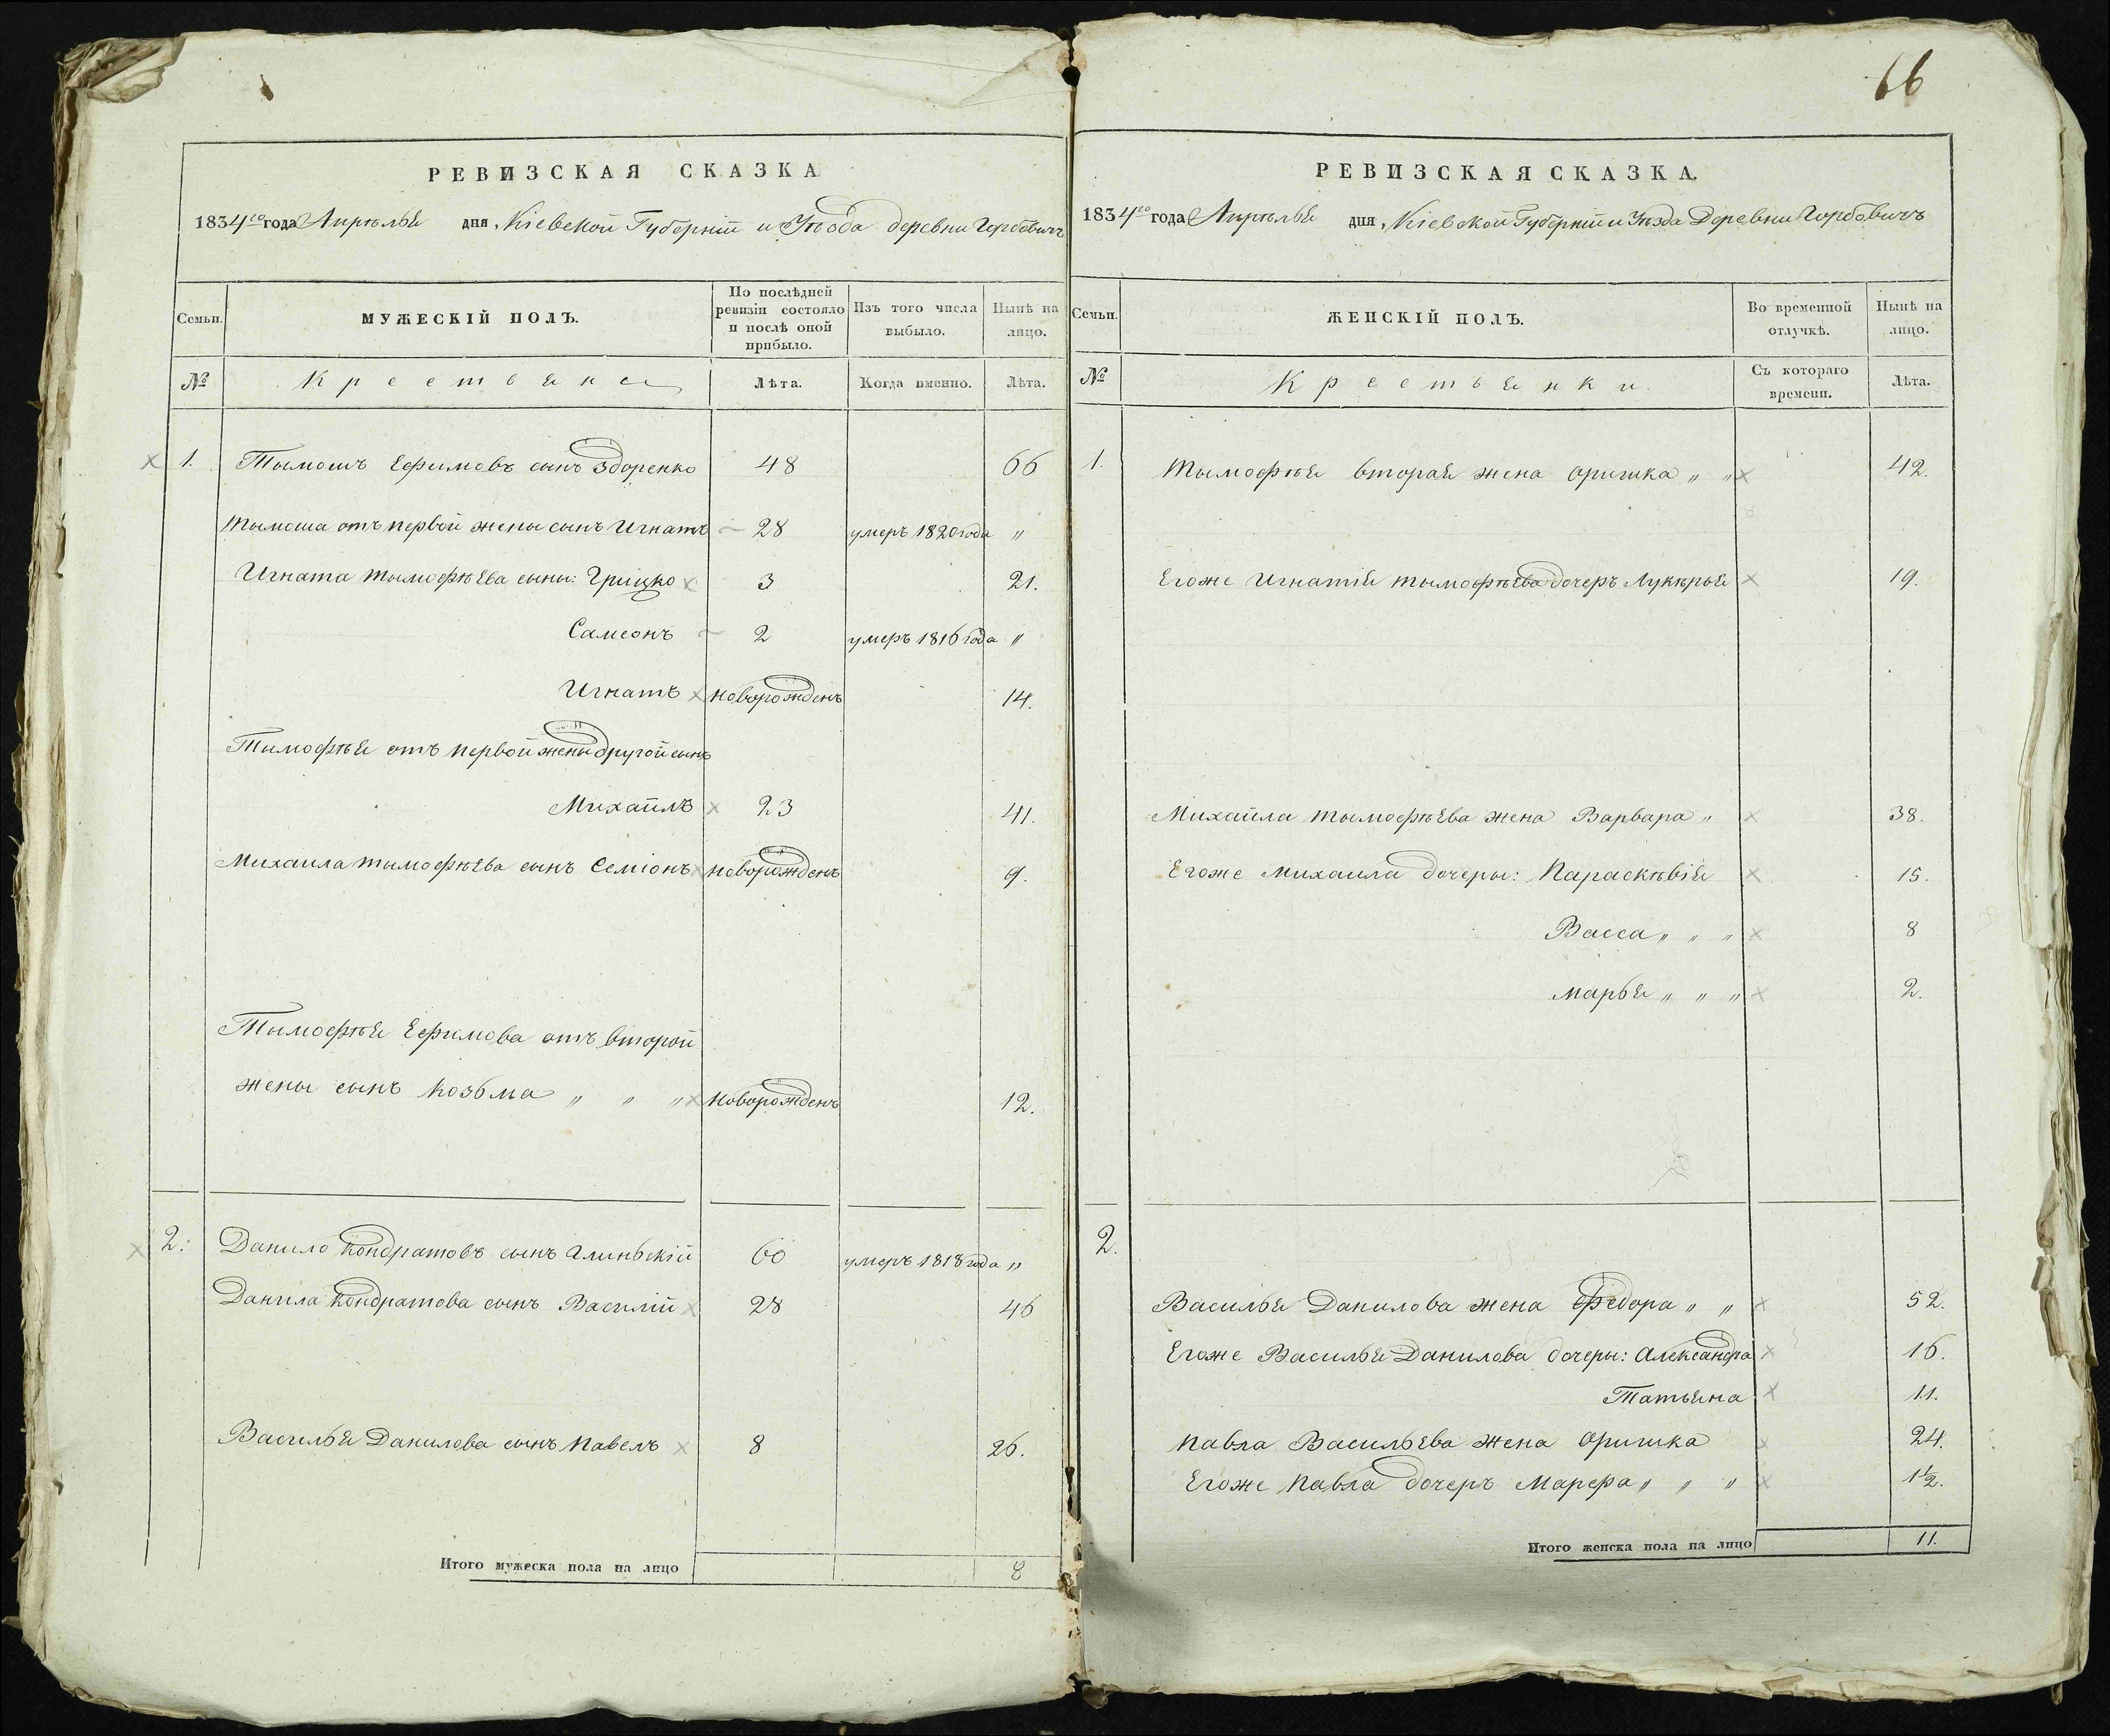 66
РЕВИЗСКАЯ СКАЗКА
1834го года Апрѣля дня, Кіевской Губерніи и Уѣзда деревни Горбовичъ
Семьи.
МУЖЕСКІЙ ПОЛЪ.
По послѣдней ревизіи состояло и послѣ оной прибыло.
Изъ того числа выбыло.
Нынѣ на лицо.
№
Крестьяне
Лѣта.
Когда именно.
Лѣта.
1. Тымошъ Ефимовъ сынъ Здоренко 48 66
Тымоша отъ первой жены сынъ Игнатъ 28 умеръ 1820 года "
Игната Тымофѣева сыны: Грицко 3 21.
Самсонъ 2 умеръ 1816 года "
Игнатъ новорожденъ 14.
Тимофѣя отъ первой жены другой сынъ
Михайлъ 23 41.
Михаила Тымофѣева сынъ Семіонъ новорожденъ 9.
Тымофѣя Ефимова отъ второй
жены сынъ Козьма " " " новорожденъ 12.
2. Данило Кондратовъ сынъ Глиньскій 60 умеръ 1818 года "
Данила Кондратова сынъ Василій 28 46
Василья Данилова сынъ Павелъ 8 26.
Итого мужеска пола на лицо 8
РЕВИЗСКАЯ СКАЗКА.
1834го года Апрѣля дня, Кіевской Губерніи и Уѣзда Деревни Горбовичъ
Семьи.
ЖЕНСКІЙ ПОЛЪ.
Во временной отлучкѣ.
Нынѣ на лицо.
№
Крестьянки.
Съ котораго времени.
Лѣта.
1. Тымофѣя вторая жена Оришка " " 42.
Егоже Игнатія Тымофѣева дочерь Лукѣрья 19.
Михайла Тымофѣева жена Варвара " 38.
Егоже Михаила дочеры: Параскѣвія 15.
Васса " " " 8
Марья " " " 2.
2.
Василья Данилова жена Федора " " 52.
Егоже Василья Данилова дочеры: Александра 16.
Татьяна 11.
Павла Васильева жена Оришка 24.
Егоже Павла дочерь Марфа " " " 1½.
Итого женска пола на лицо 11.